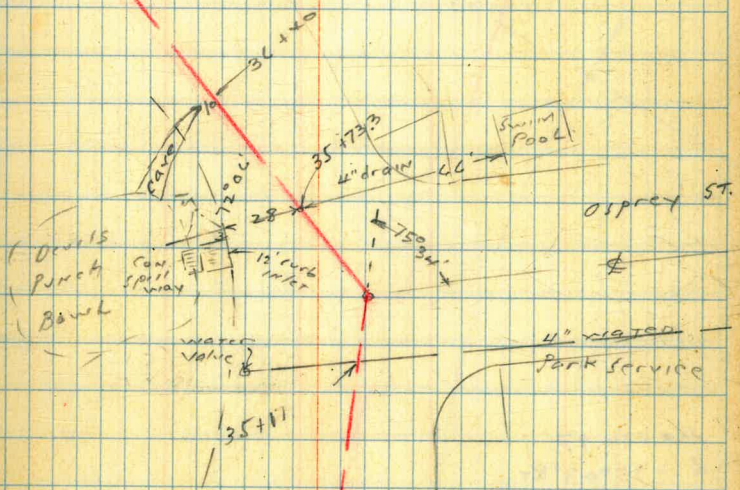 36+40
10
Cave
35+73.3
4" drain
66'
Swim
Pool
72° 06'
28
Osprey ST.
75°
34'
Devils
Punch
Bowl
Con.
Spill
way
12' curb
inlet
Water
Valve
4" water
Park Service
35+17